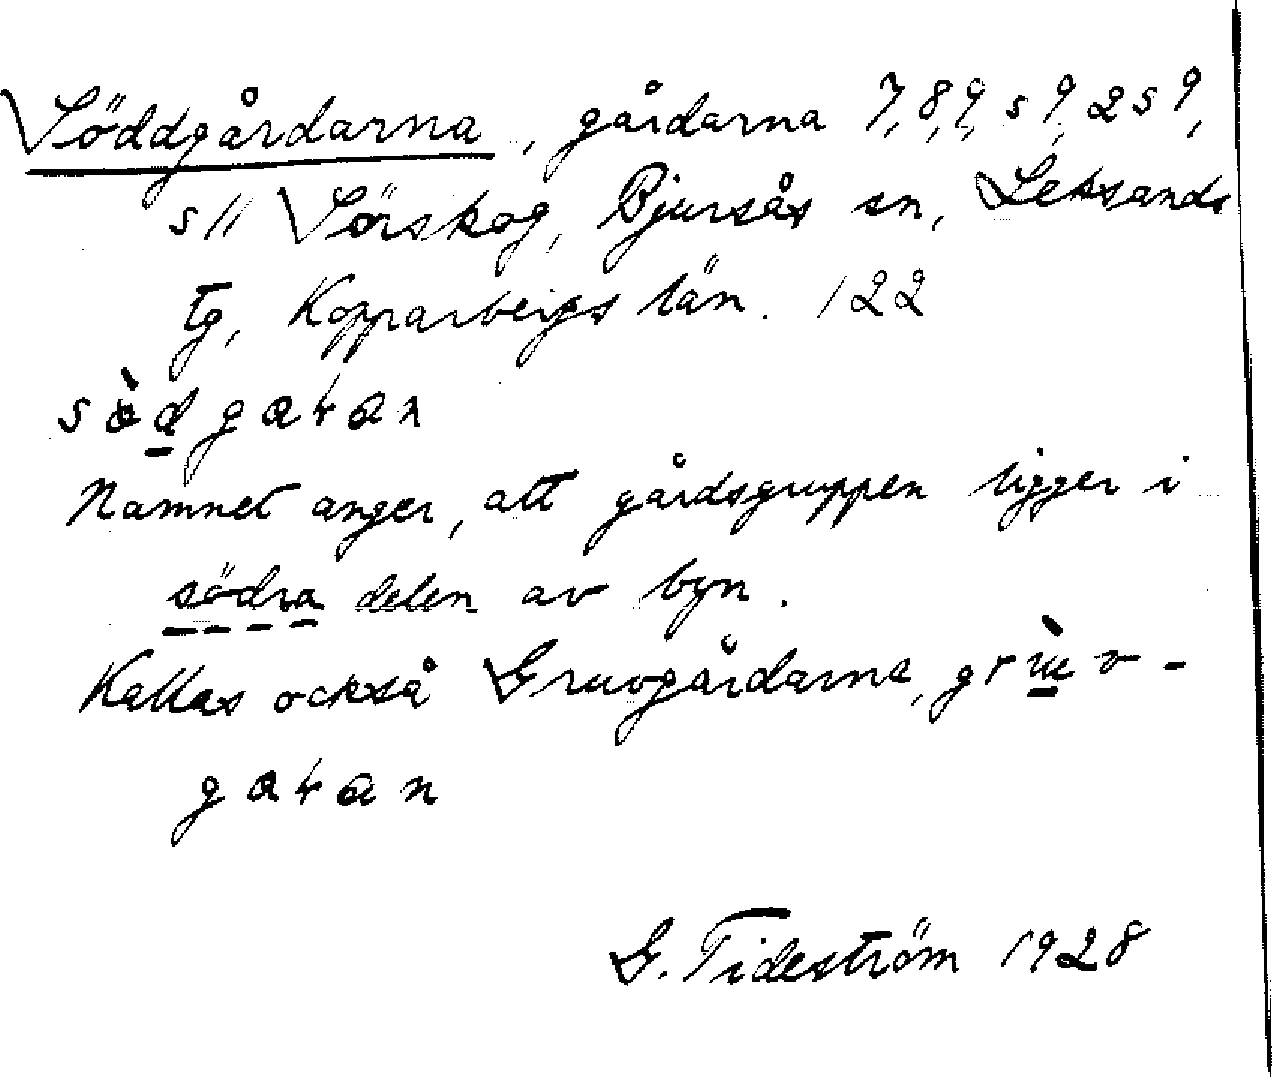 Söddgårdarna, gårdarna 7, 8, 9, s 9, 2 s 9,
s 11 Sörskog, Bjursås sn, Leksands
tg, Kopparbergs län. 122
sö̀dgaran
Namnet anger, att gårdsgruppen ligger i
södra delen av byn.
Kallas också Gruvgårdarna, grùv-
garan
G. Tideström 1928